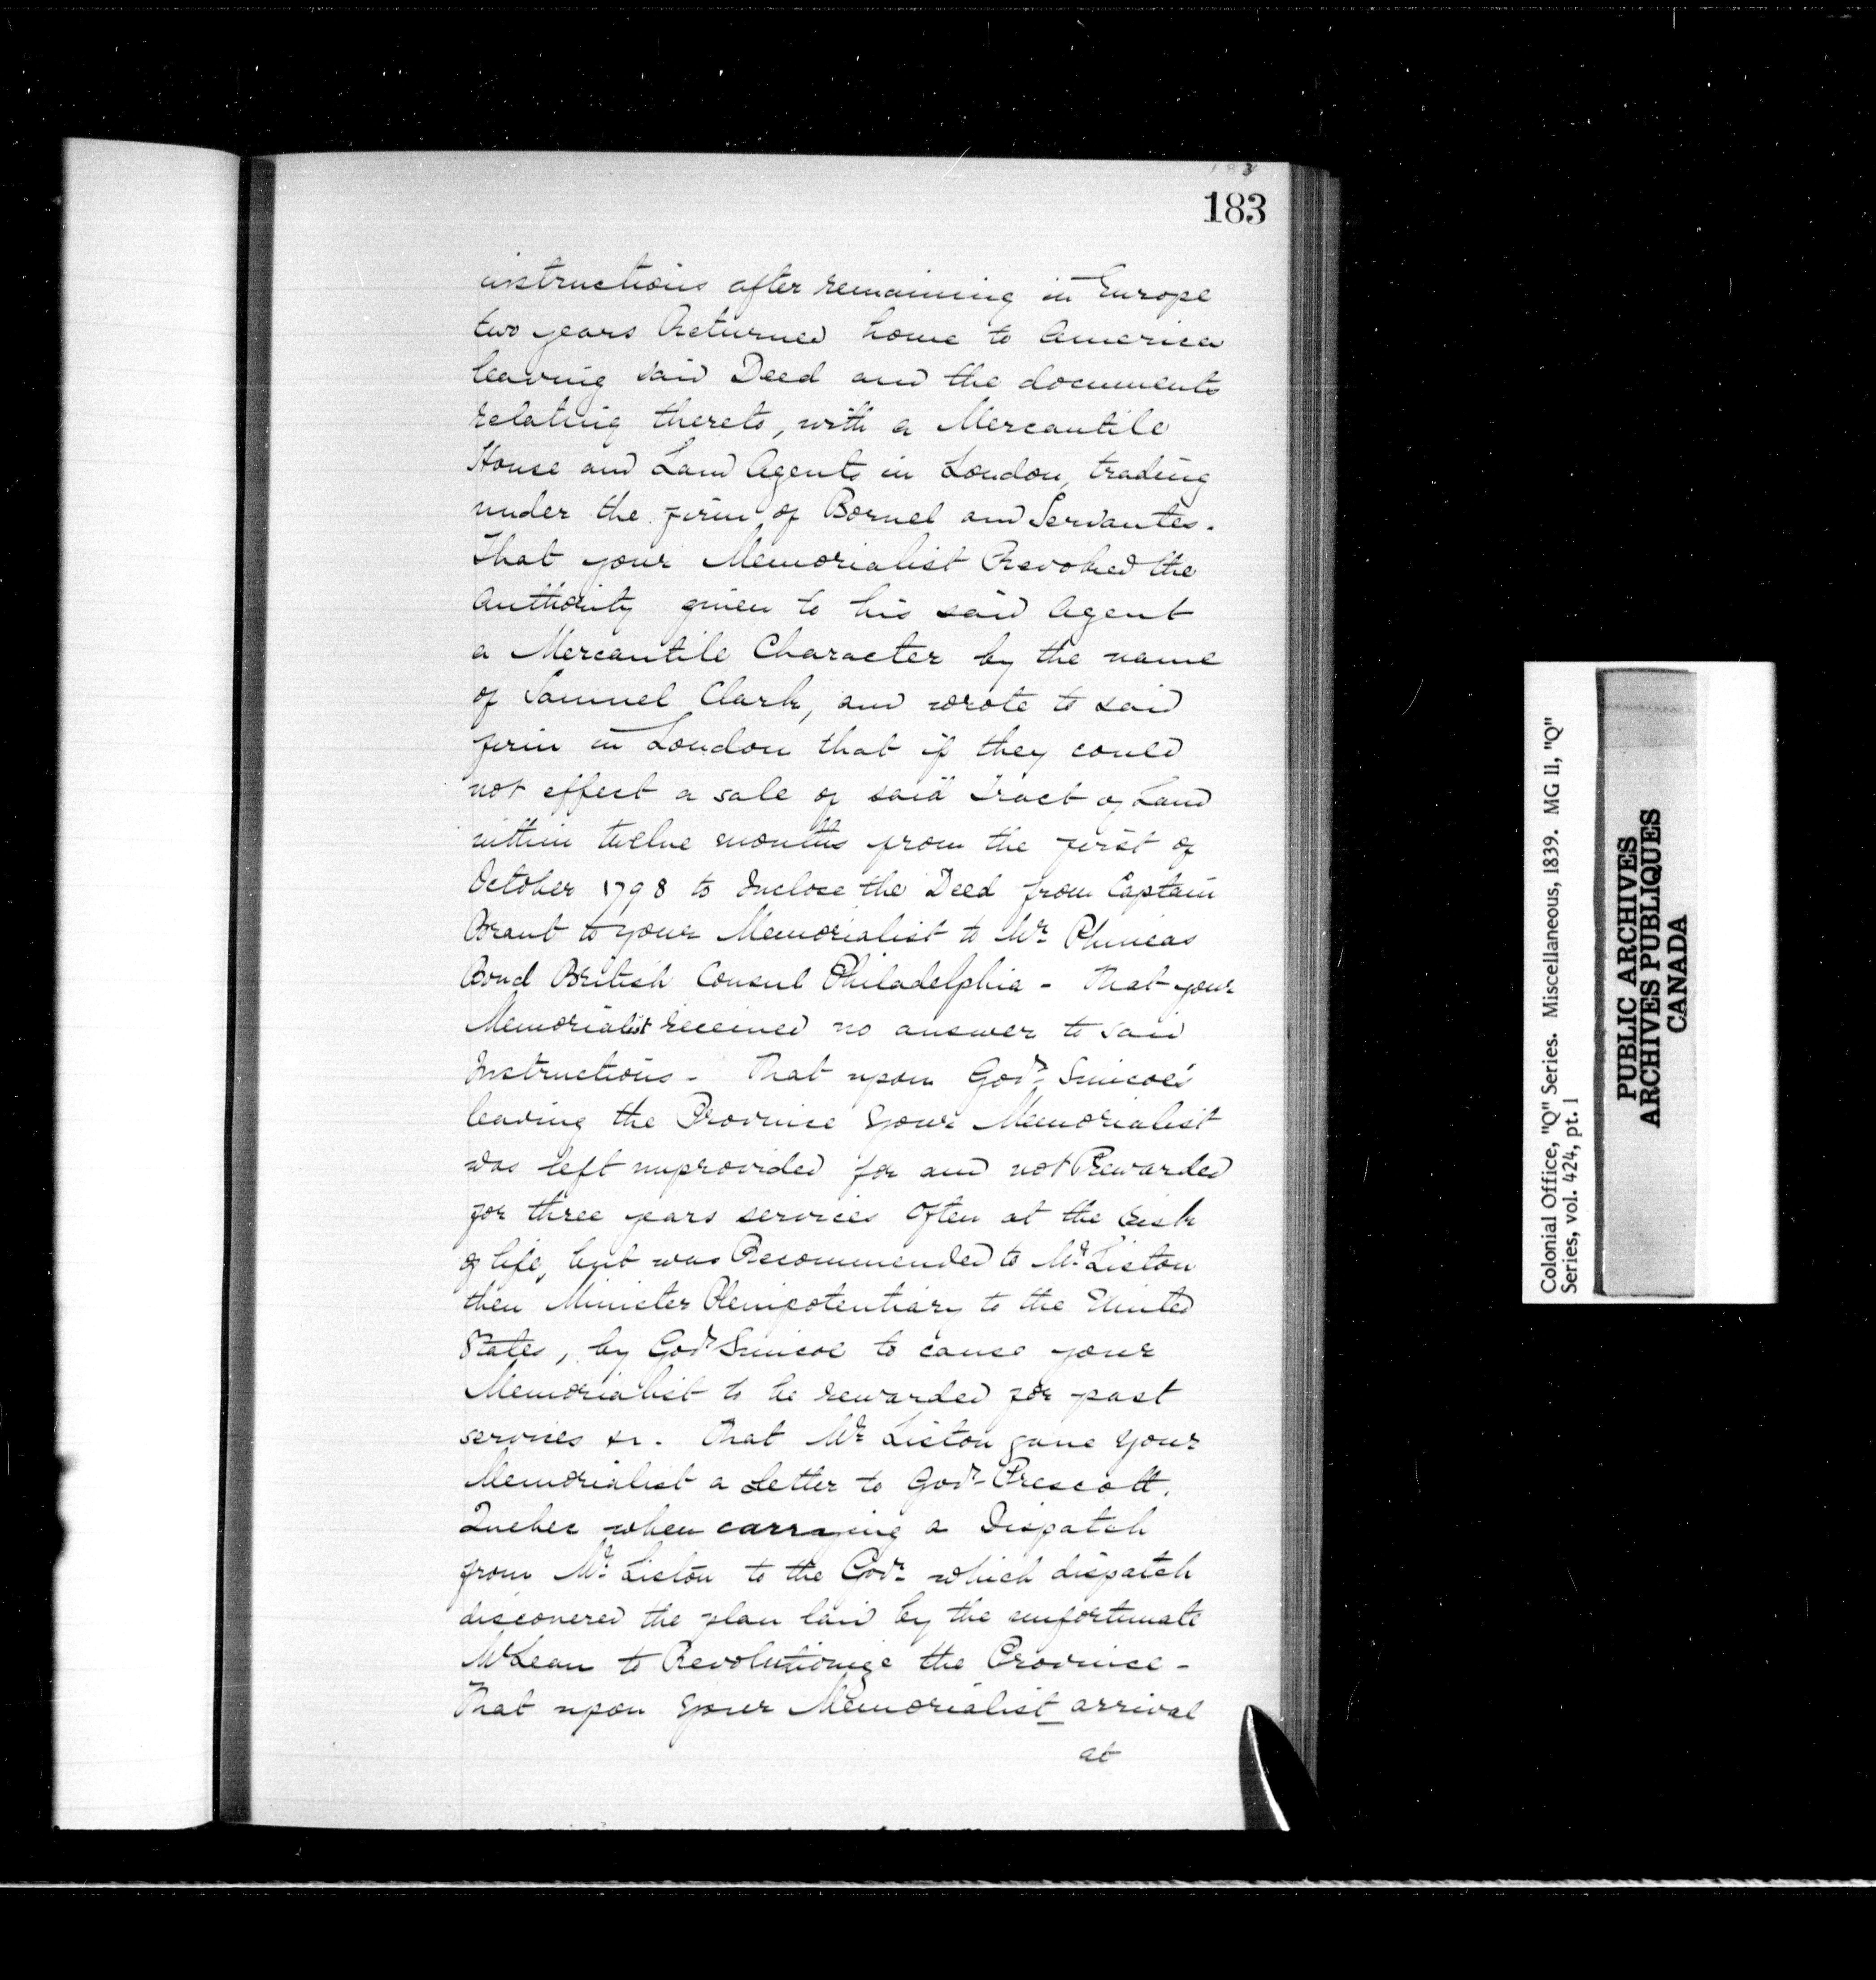 183
instructions after remaining in Europe
two years Returned home to America
leaving said Deed and the documents
relating thereto, with a Mercantile
House and Land Agents in London, trading
under the firm of Bornel and Servantes.
That your Memorialist Revoked the
Authority given to his said Agent
a Mercantile Character by the name
of Samuel Clark, and wrote to said
firm in London that if they could
not effect a sale of said Tract of Land
within twelve months from the first of
October 1798 to Inclose the Deed from Captain
Brant to your Memorialist to Mr. Phineas
Bond British Consul Philadelphia - That your
Memorialist received no answer to said
Instructions - That upon Govr. Simcoe's
leaving the Province your Memorialist
was left unprovided for and not Rewarded
for three years services often at the risk
of life, but was Recommended to Mr. Liston
then Minister Plenipotentiary to the United
States, by Govr Simcoe to cause your
Memorialist to be rewarded for past
services &c. That Mr. Liston gave your
Memorialist a Letter to Govr. Prescott,
Quebec when carrying a Dispatch
from Mr. Liston to the Govr. which dispatch
discovered the plan laid by the unfortunate
McLean to Revolutionize the Province -
That upon your Memorialist arrival
at
Colonial Office, "Q" Series. Miscellaneous, 1839. MG 11, "Q"
Series, vol. 424, pt. 1
PUBLIC ARCHIVES
ARCHIVES PUBLIQUES
CANADA